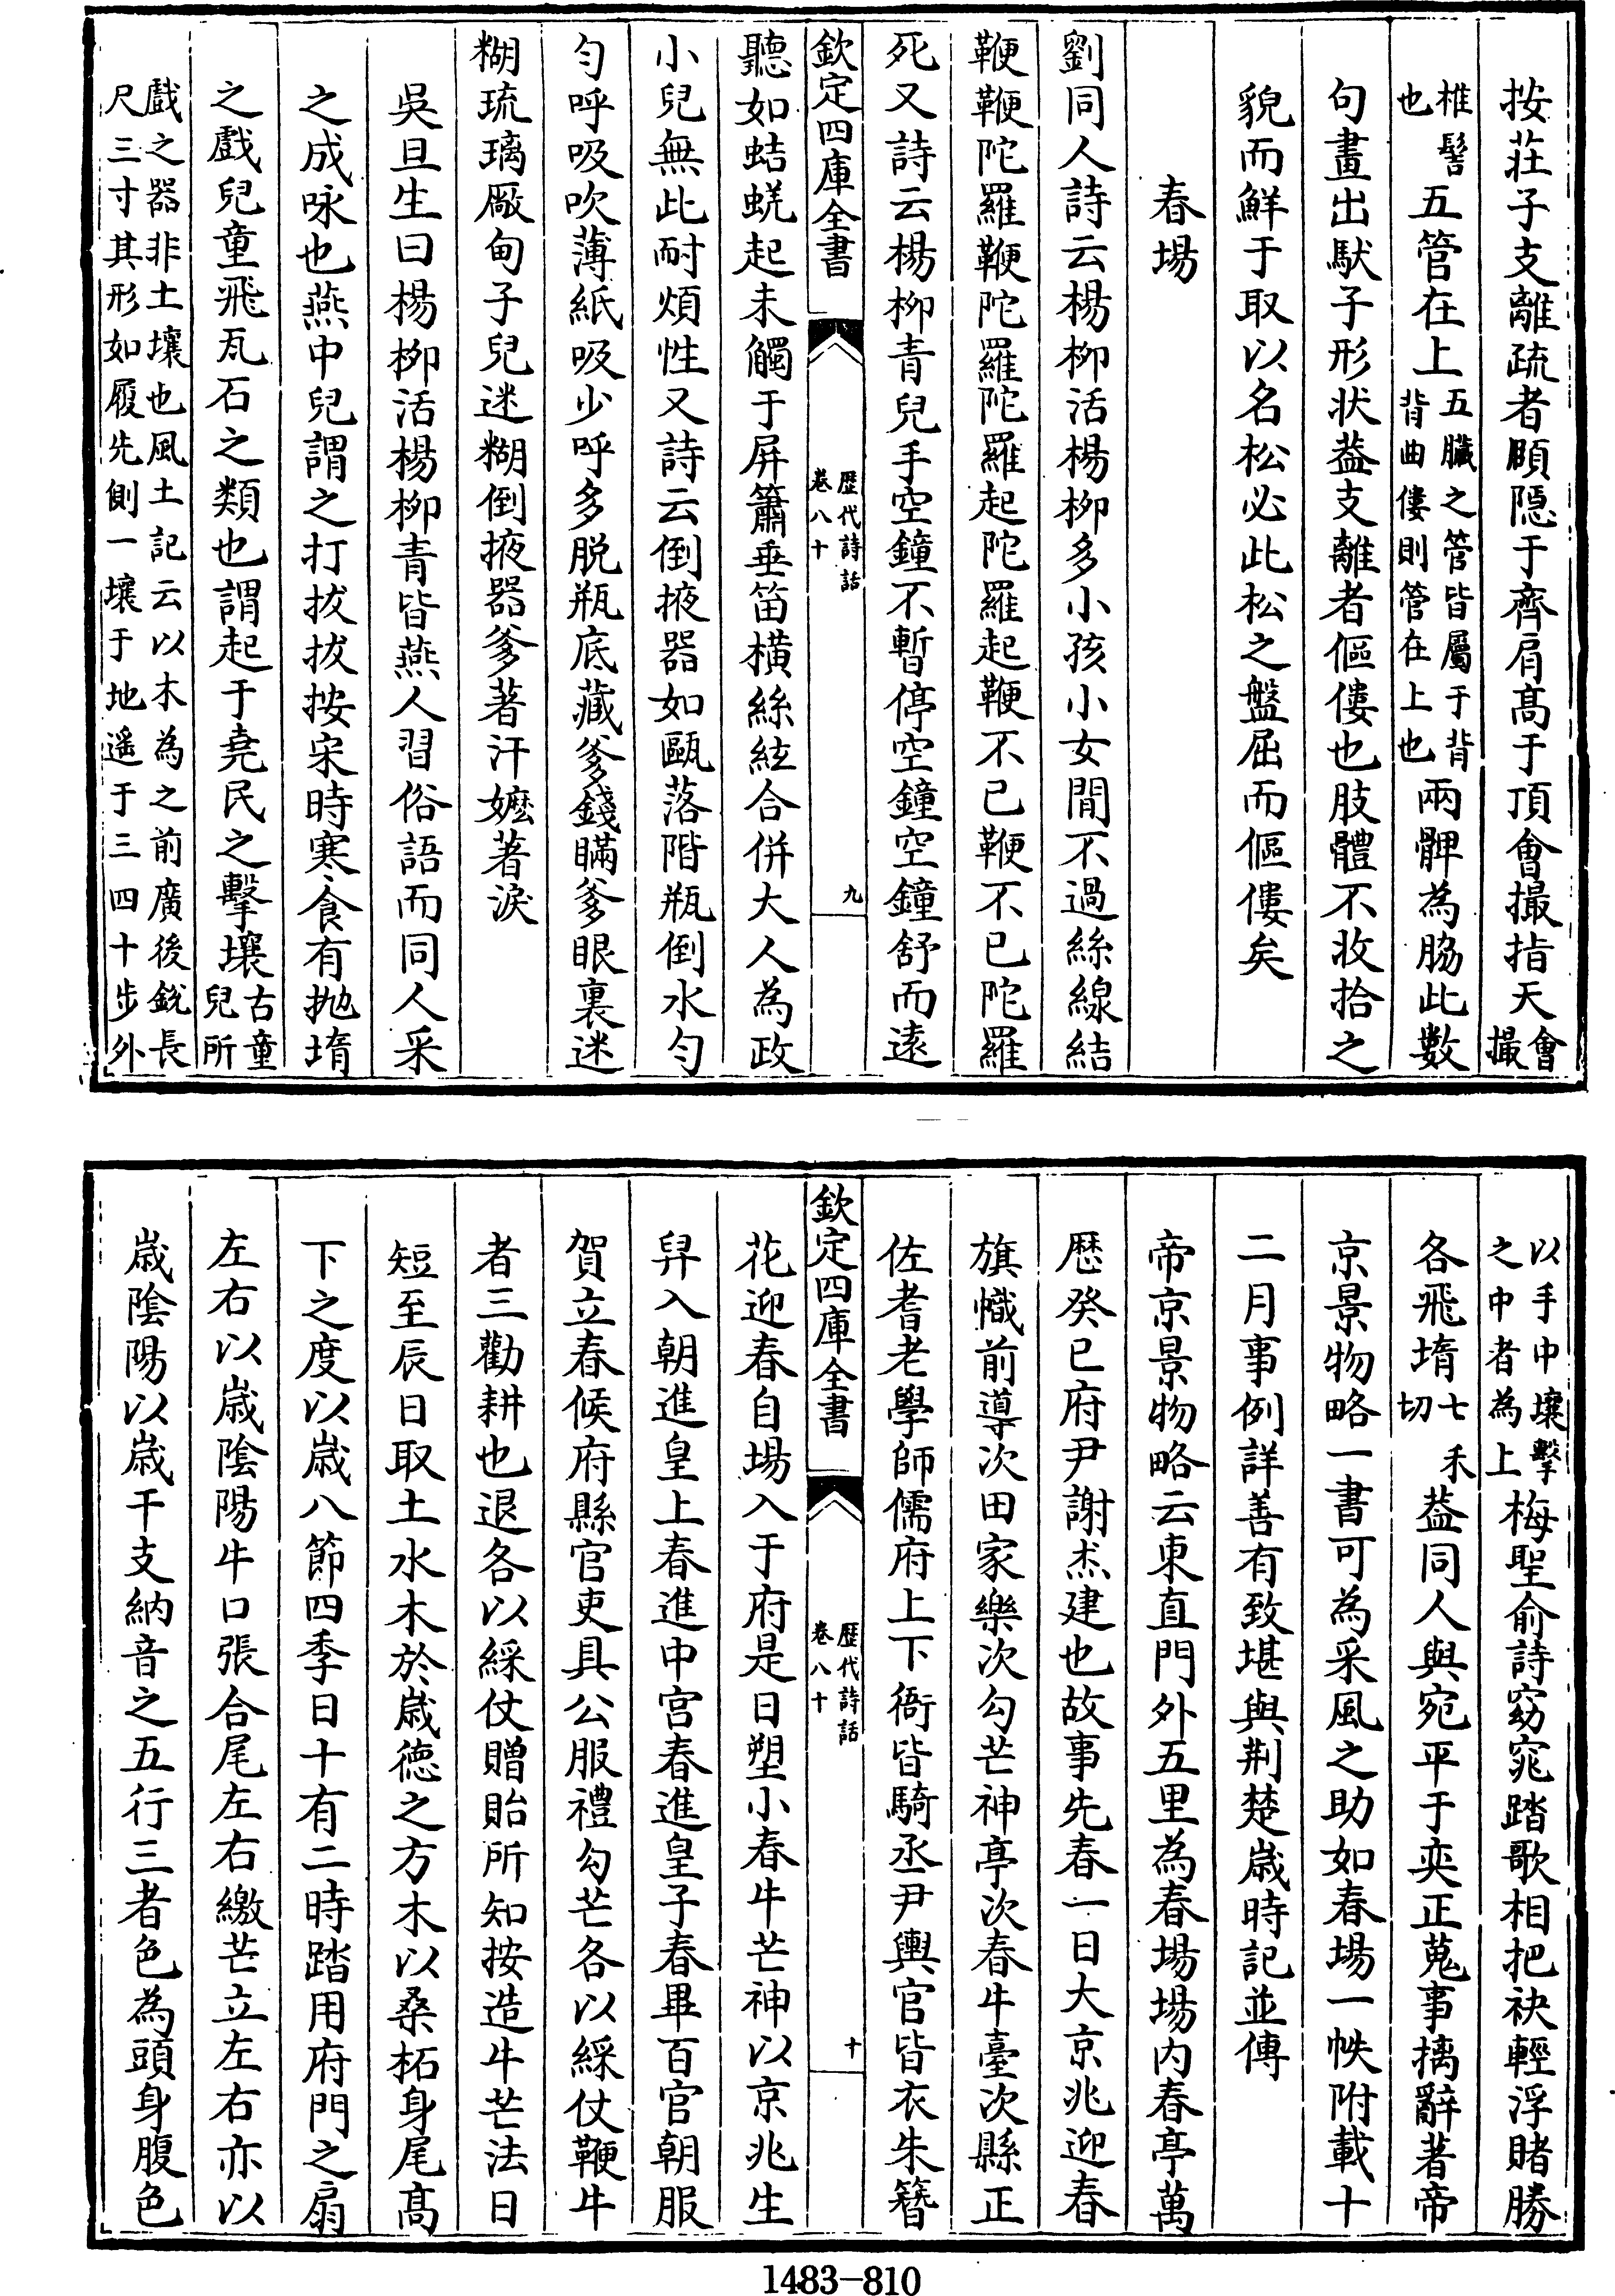 按莊子支離疏者頤隠于齊肩髙于頂會撮指天會撮
椎髻也五管在上五臟之管皆屬于背背曲僂則管在上也兩髀為脇此數
句畫出馱子形状葢支離者傴僂也肢體不收拾之
貌而鮮于取以名松必此松之盤屈而傴僂矣
春場
劉同人詩云楊栁活楊栁多小孩小女閒不過絲線結
鞭鞭陀羅鞭陀羅陀羅起陀羅起鞭不已鞭不已陀羅
死又詩云楊栁青兒手空鐘不暫停空鐘空鐘舒而遠
欽定四庫全書
歴代詩話
卷八十
九
聽如蛣蜣起未觸于屏簫垂笛橫絲絃合併大人為政
小兒無此耐煩性又詩云倒掖器如甌落階瓶倒水勻
勻呼吸吹薄紙吸少呼多脱瓶底藏爹錢瞞爹眼裏迷
糊琉璃厰甸子兒迷糊倒掖器爹著汗嬷著淚
吳旦生曰楊栁活楊栁青皆燕人習俗語而同人采
之成咏也燕中兒謂之打拔拔按宋時寒食有抛堶
之戲兒童飛瓦石之類也謂起于堯民之擊壤古童兒所
戲之器非土壤也風土記云以木為之前廣後鋭長尺三寸其形如履先側一壤于地遥于三四十步外
以手中壤擊之中者為上梅聖俞詩窈窕踏歌相把袂輕浮賭勝
各飛堶七禾切葢同人與宛平于奕正蒐事摛辭著帝
京景物略一書可為采風之助如春場一帙附載十
二月事例詳善有致堪與荆楚嵗時記並傳
帝京景物略云東直門外五里為春場場内春亭萬
歴癸巳府尹謝杰建也故事先春一日大京兆迎春
旗幟前導次田家樂次勾芒神亭次春牛臺次縣正
佐耆老學師儒府上下衙皆騎丞尹輿官皆衣朱簪
欽定四庫全書
歴代詩話
卷八十
十
花迎春自場入于府是日塑小春牛芒神以京兆生
舁入朝進皇上春進中宫春進皇子春畢百官朝服
賀立春候府縣官吏具公服禮勾芒各以綵仗鞭牛
者三勸耕也退各以綵仗贈貽所知按造牛芒法日
短至辰日取土水木於嵗徳之方木以桑柘身尾髙
下之度以嵗八節四季日十有二時踏用府門之扇
左右以嵗陰陽牛口張合尾左右繳芒立左右亦以
嵗陰陽以嵗干支納音之五行三者色為頭身腹色
1483-810